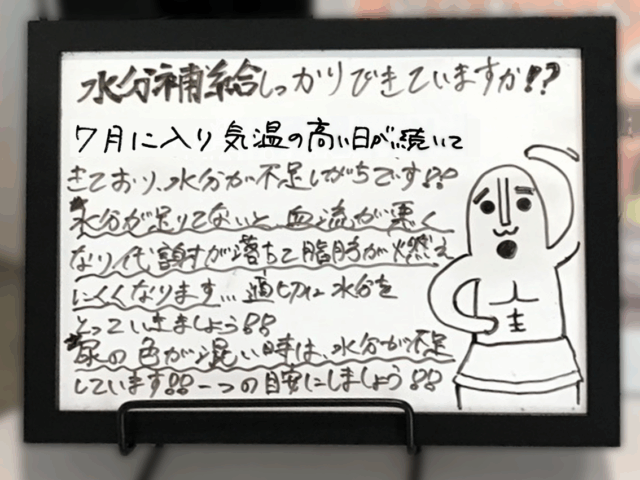 水分補給しっかりできていますか!?
7月に入り気温の高い日が続いて
きており、水分が不足しがちです!!
*水分が足りてないと、血流が悪く
なり代謝が落ちて脂肪が燃え
にくくなります...適切に水分を
とっていきましょう!!
*尿の色が混い時は、水分が不足
しています!!一つの目安にしましょう!!